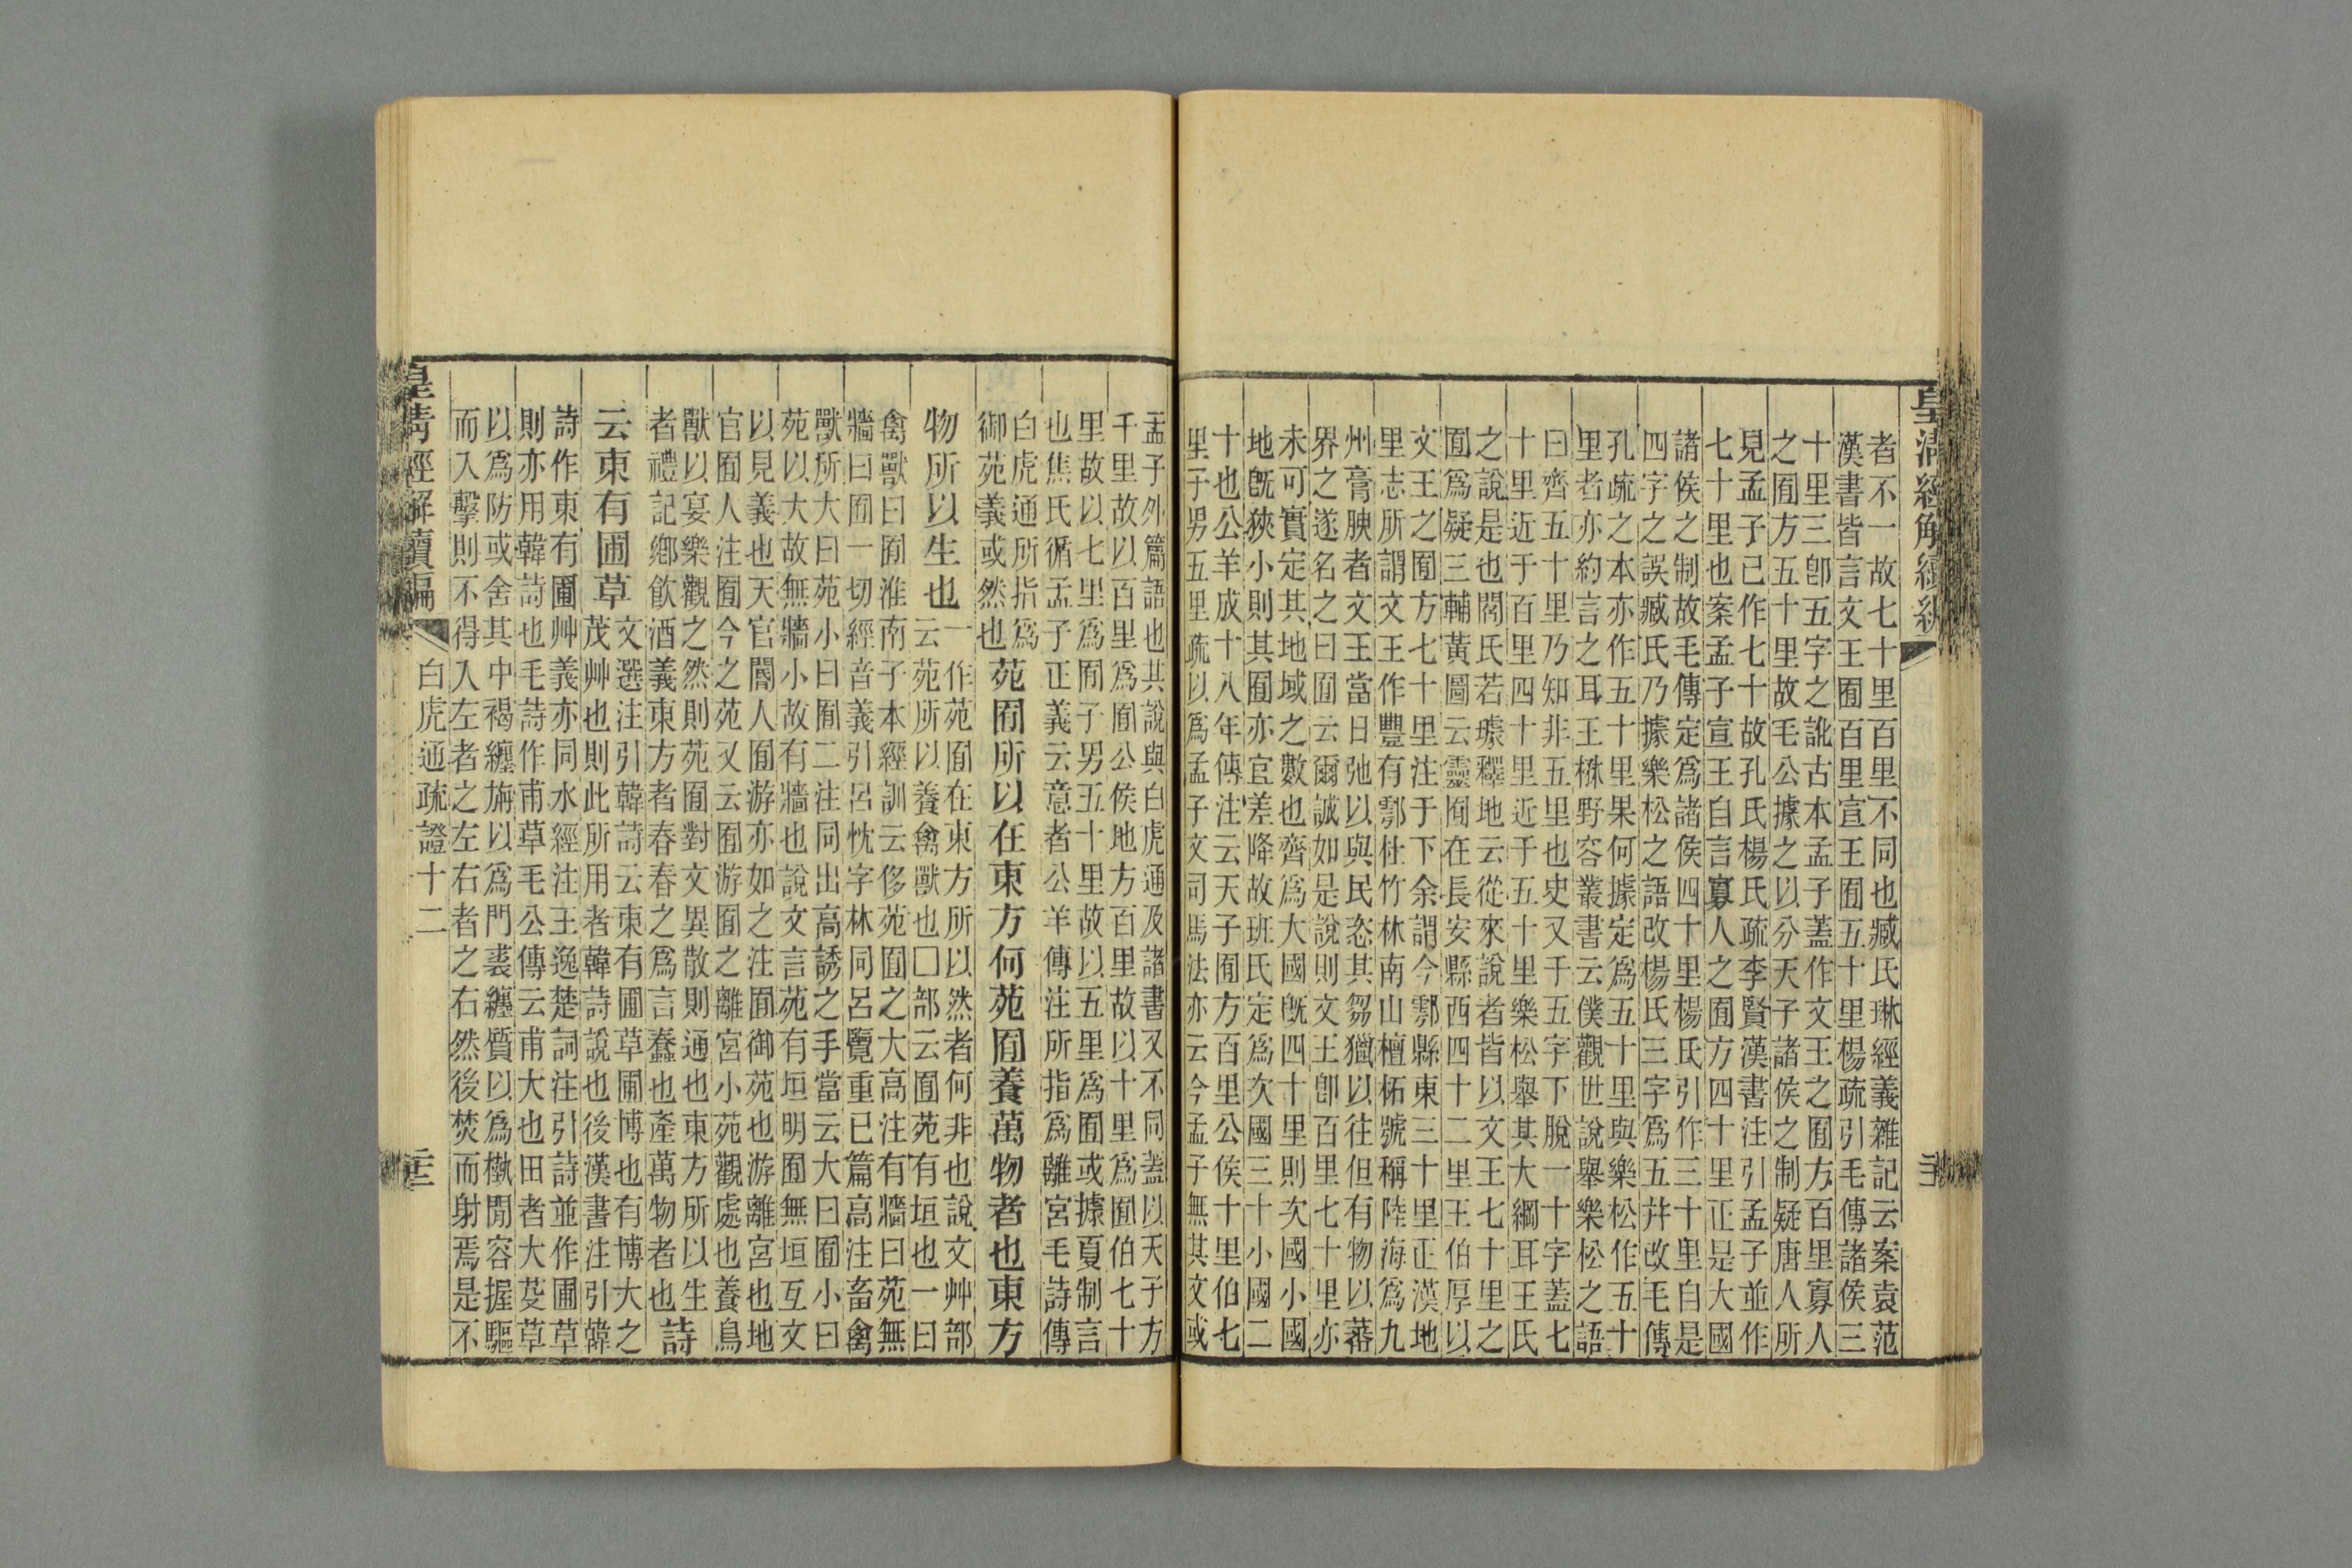 皇清經解續編
者不一故七十里百里不同也臧氏琳經義雜記云案袁范
漢書皆言文王囿百里宣王囿五十里楊疏引毛傳諸侯三
十里三卽五字之訛古本孟子蓋作文王之囿方百里寡人
之囿方五十里故毛公據之以分天子諸侯之制疑唐人所
見孟子已作七十故孔氏楊氏疏李賢漢書注引孟子並作
七十里也案孟子宣王自言寡人之囿方四十里正是大國
諸侯之制故毛傳定爲諸侯四十里楊氏引作三十里自是
四字之誤臧氏乃據樂松之語改楊氏三字爲五幷改毛傳
孔疏之本亦作五十里果何據定爲五十里與樂松作五十
里者亦約言之耳王楙野容叢書云僕觀世說舉樂松之語
曰齊五十里乃知非五里也史又于五字下脫一十字蓋七
十里近于百里四十里近于五十里樂松舉其大綱耳王氏
之說是也閻氏若璩釋地云從來說者皆以文王七十里之
囿爲疑三輔黃圖云靈囿在長安縣西四十二里王伯厚以
文王之囿方七十里注于下余謂今鄠縣東三十里正漢地
里志所謂文王作豐有鄠杜竹林南山檀柘號稱陸海爲九
州膏腴者文王當日弛以與民恣其芻獵以往但有物以蕃
界之遂名之曰囿云爾誠如是說則文王卽百里七十里亦
未可實定其地域之數也齊爲大國旣四十里則次國小國
地旣狹小則其囿亦宜差降故班氏定爲次國三十小國二
十也公羊成十八年傳注云天子囿方百里公侯十里伯七
里子男五里疏以爲孟子文司馬法亦云今孟子無其文或
孟子外篇語也其說與白虎通及諸書又不同蓋以天子方
千里故以百里爲囿公侯地方百里故以十里爲囿伯七十
里故以七里爲囿子男五十里故以五里爲囿或據夏制言
也焦氏循孟子正義云意者公羊傳注所指爲離宮毛詩傳
白虎通所指爲
御苑義或然也
苑囿所以在東方何苑囿養萬物者也東方
物所以生也
一作苑囿在東方所以然者何非也說文艸部
云苑所以養禽獸也囗部云囿苑有垣也一曰
禽獸曰囿淮南子本經訓云侈苑囿之大高注有牆曰苑無
牆曰囿一切經音義引呂忱字林同呂覽重己篇高注畜禽
獸所大曰苑小曰囿二注同出高誘之手當云大曰囿小曰
苑以大故無牆小故有牆也說文言苑有垣明囿無垣互文
以見義也天官閽人囿游亦如之注囿御苑也游離宮也地
官囿人注囿今之苑又云囿游囿之離宮小苑觀處也養鳥
獸以宴樂觀之然則苑囿對文異散則通也東方所以生
者禮記鄉飲酒義東方者春春之爲言蠢也產萬物者也
詩
云東有圃草
文選注引韓詩云東有圃草圃博也有博大之
茂艸也則此所用者韓詩說也後漢書注引韓
詩作東有圃艸義亦同水經注王逸楚詞注引詩並作圃草
則亦用韓詩也毛詩作甫草毛公傳云甫大也田者大芟草
以爲防或舍其中褐纏旃以爲門裘纏質以爲槸閒容握驅
而入擊則不得入左者之左右者之右然後焚而射焉是不
皇清經解續編
白虎通疏證十二